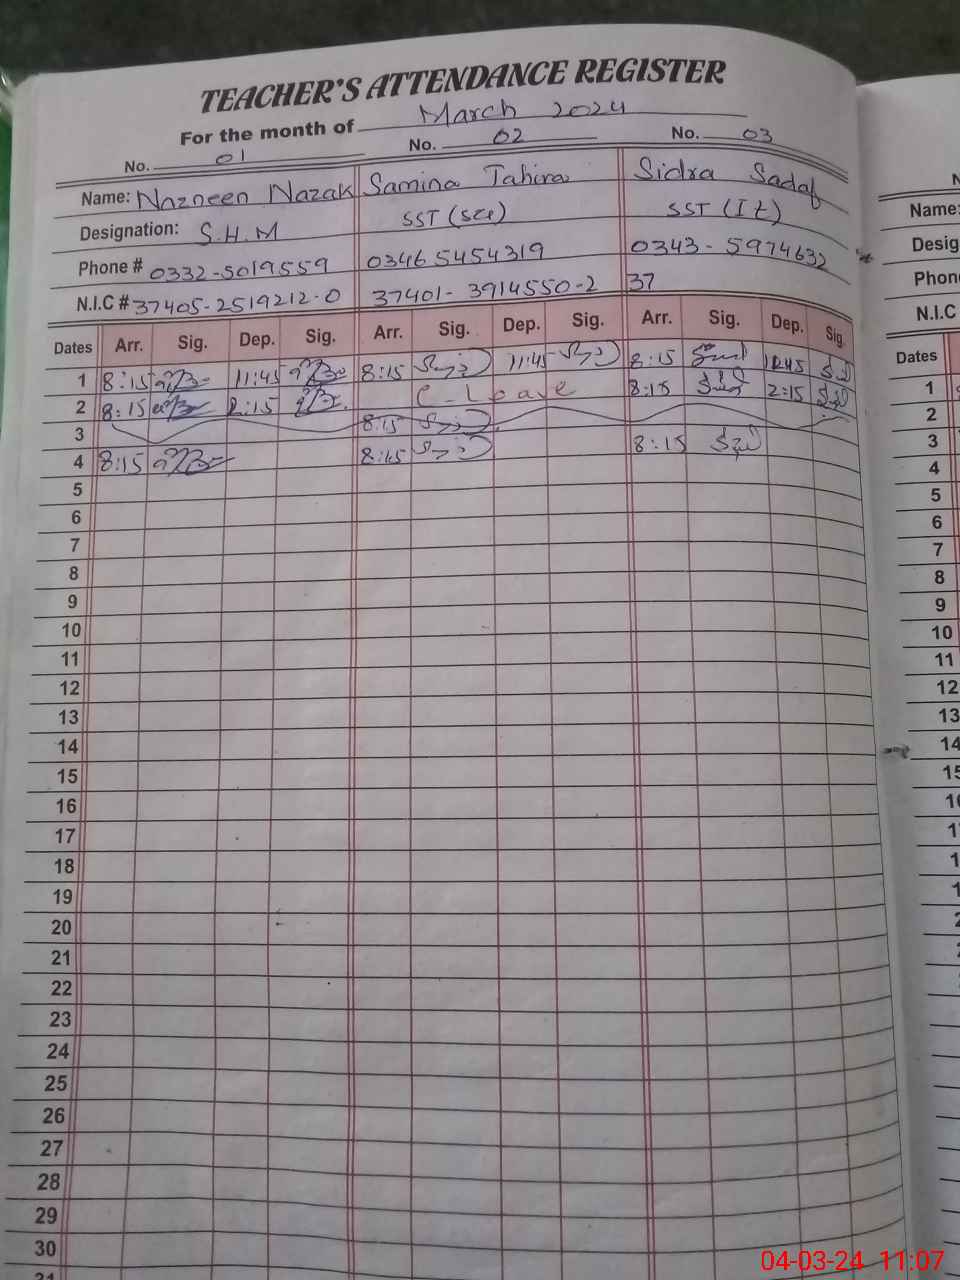 TEACHER'S ATTENDANCE REGISTER
For the month of March 2024
No. 01 No. 02 No. 03
Name: Nazneen Nazak Samina Tahira Sidra Sadaf
Designation: S.H.M SST (sce) SST (It)
Phone # 0332-5019559 03465454319 0343-5974632
N.I.C # 37405-2519212-0 37401-3914550-2 37
Dates Arr. Sig. Dep. Sig. Arr. Sig. Dep. Sig. Arr. Sig. Dep. Sig.
1 8:15 11:45 8:15 11:45 8:15
2 8:15 2:15 C-Leave 8:15 2:15
3 8:15
4 8:15 8:15 8:15
5
6
7
8
9
10
11
12
13
14
15
16
17
18
19
20
21
22
23
24
25
26
27
28
29
30
Name:
Desig
Phon
N.I.C
Dates
1
2
3
4
5
6
7
8
9
10
11
12
13
14
04-03-24 11:07